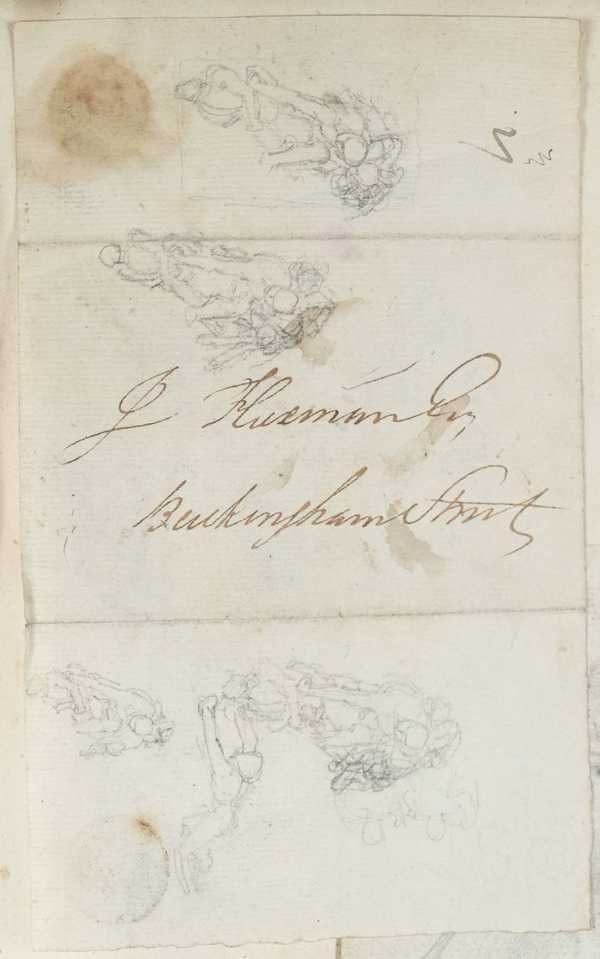 J Flaxman Esq,
Buckingham Street